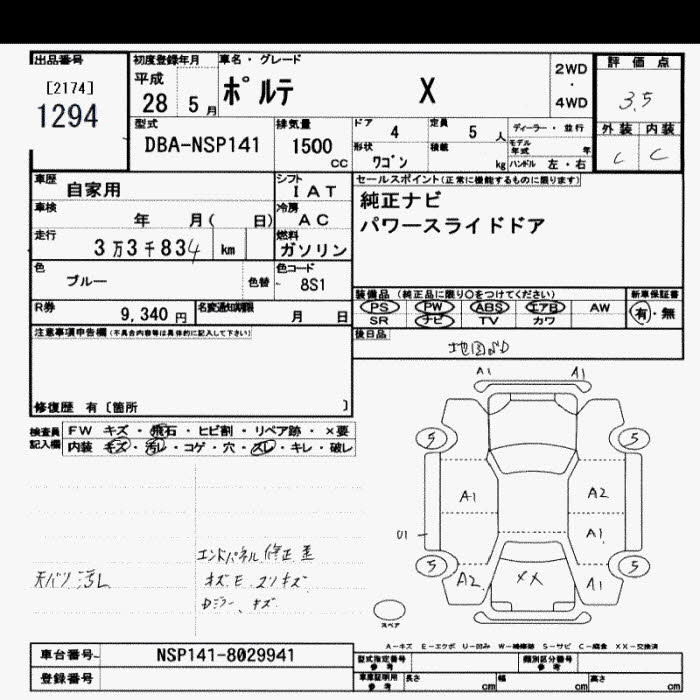 出品番号
[2174]
1294
初度登録年月
平成
28 5 月
車名・グレード
ポルテ X
2WD
・
4WD
評価点
3.5
外装 内装
C C
型式
DBA-NSP141
排気量
1500
cc
ドア
4
定員
5 人
ディーラー・並行
形状
ワゴン
積載
kg
モデル年式 年
ハンドル 左・右
車歴
自家用
シフト
IAT
セールスポイント(正常に機能するものに限ります)
純正ナビ
パワースライドドア
車検
年 月( 日)
冷房
AC
走行
3万3千834 km
燃料
ガソリン
色
ブルー
色替
色コード
8S1
装備品 (純正品に限り○をつけてください)
PS PW ABS エアB AW
SR ナビ TV カワ
新車保証書
有・無
R券
9,340 円
名変通知期限
月 日
後日品
地図SD
注意事項申告欄(不具合内容等は具体的に記入して下さい)
修復歴 有〔箇所 〕
検査員記入欄
FW キズ・飛石・ヒビ割・リペア跡・×要
内装 キズ・汚レ・コゲ・穴・スレ・キレ・破レ
A1 A1
5 5
A1 A2
U1 A1
5 5
A2 XX A1
スペア
エンドパネル修正歪
天バリ汚レ
A-キズ E-エクボ U-凹み W-補修跡 S-サビ C-腐食 XX-交換済
車台番号
NSP141-8029941
登録番号
型式指定番号
参考
類別区分番号
参考
車庫証明用
参考
長さ cm
幅 cm
高さ cm